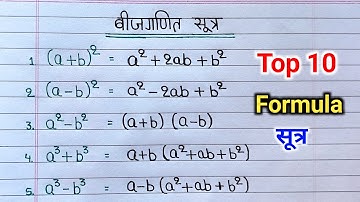 बीजगणित सूत्र
1. (a+b)² = a²+2ab+b²
2. (a-b)² = a²-2ab+b²
3. a²-b² = (a+b) (a-b)
4. a³+b³ = a+b (a²+ab+b²)
5. a³-b³ = a-b (a²+ab+b²)
Top 10
Formula
सूत्र